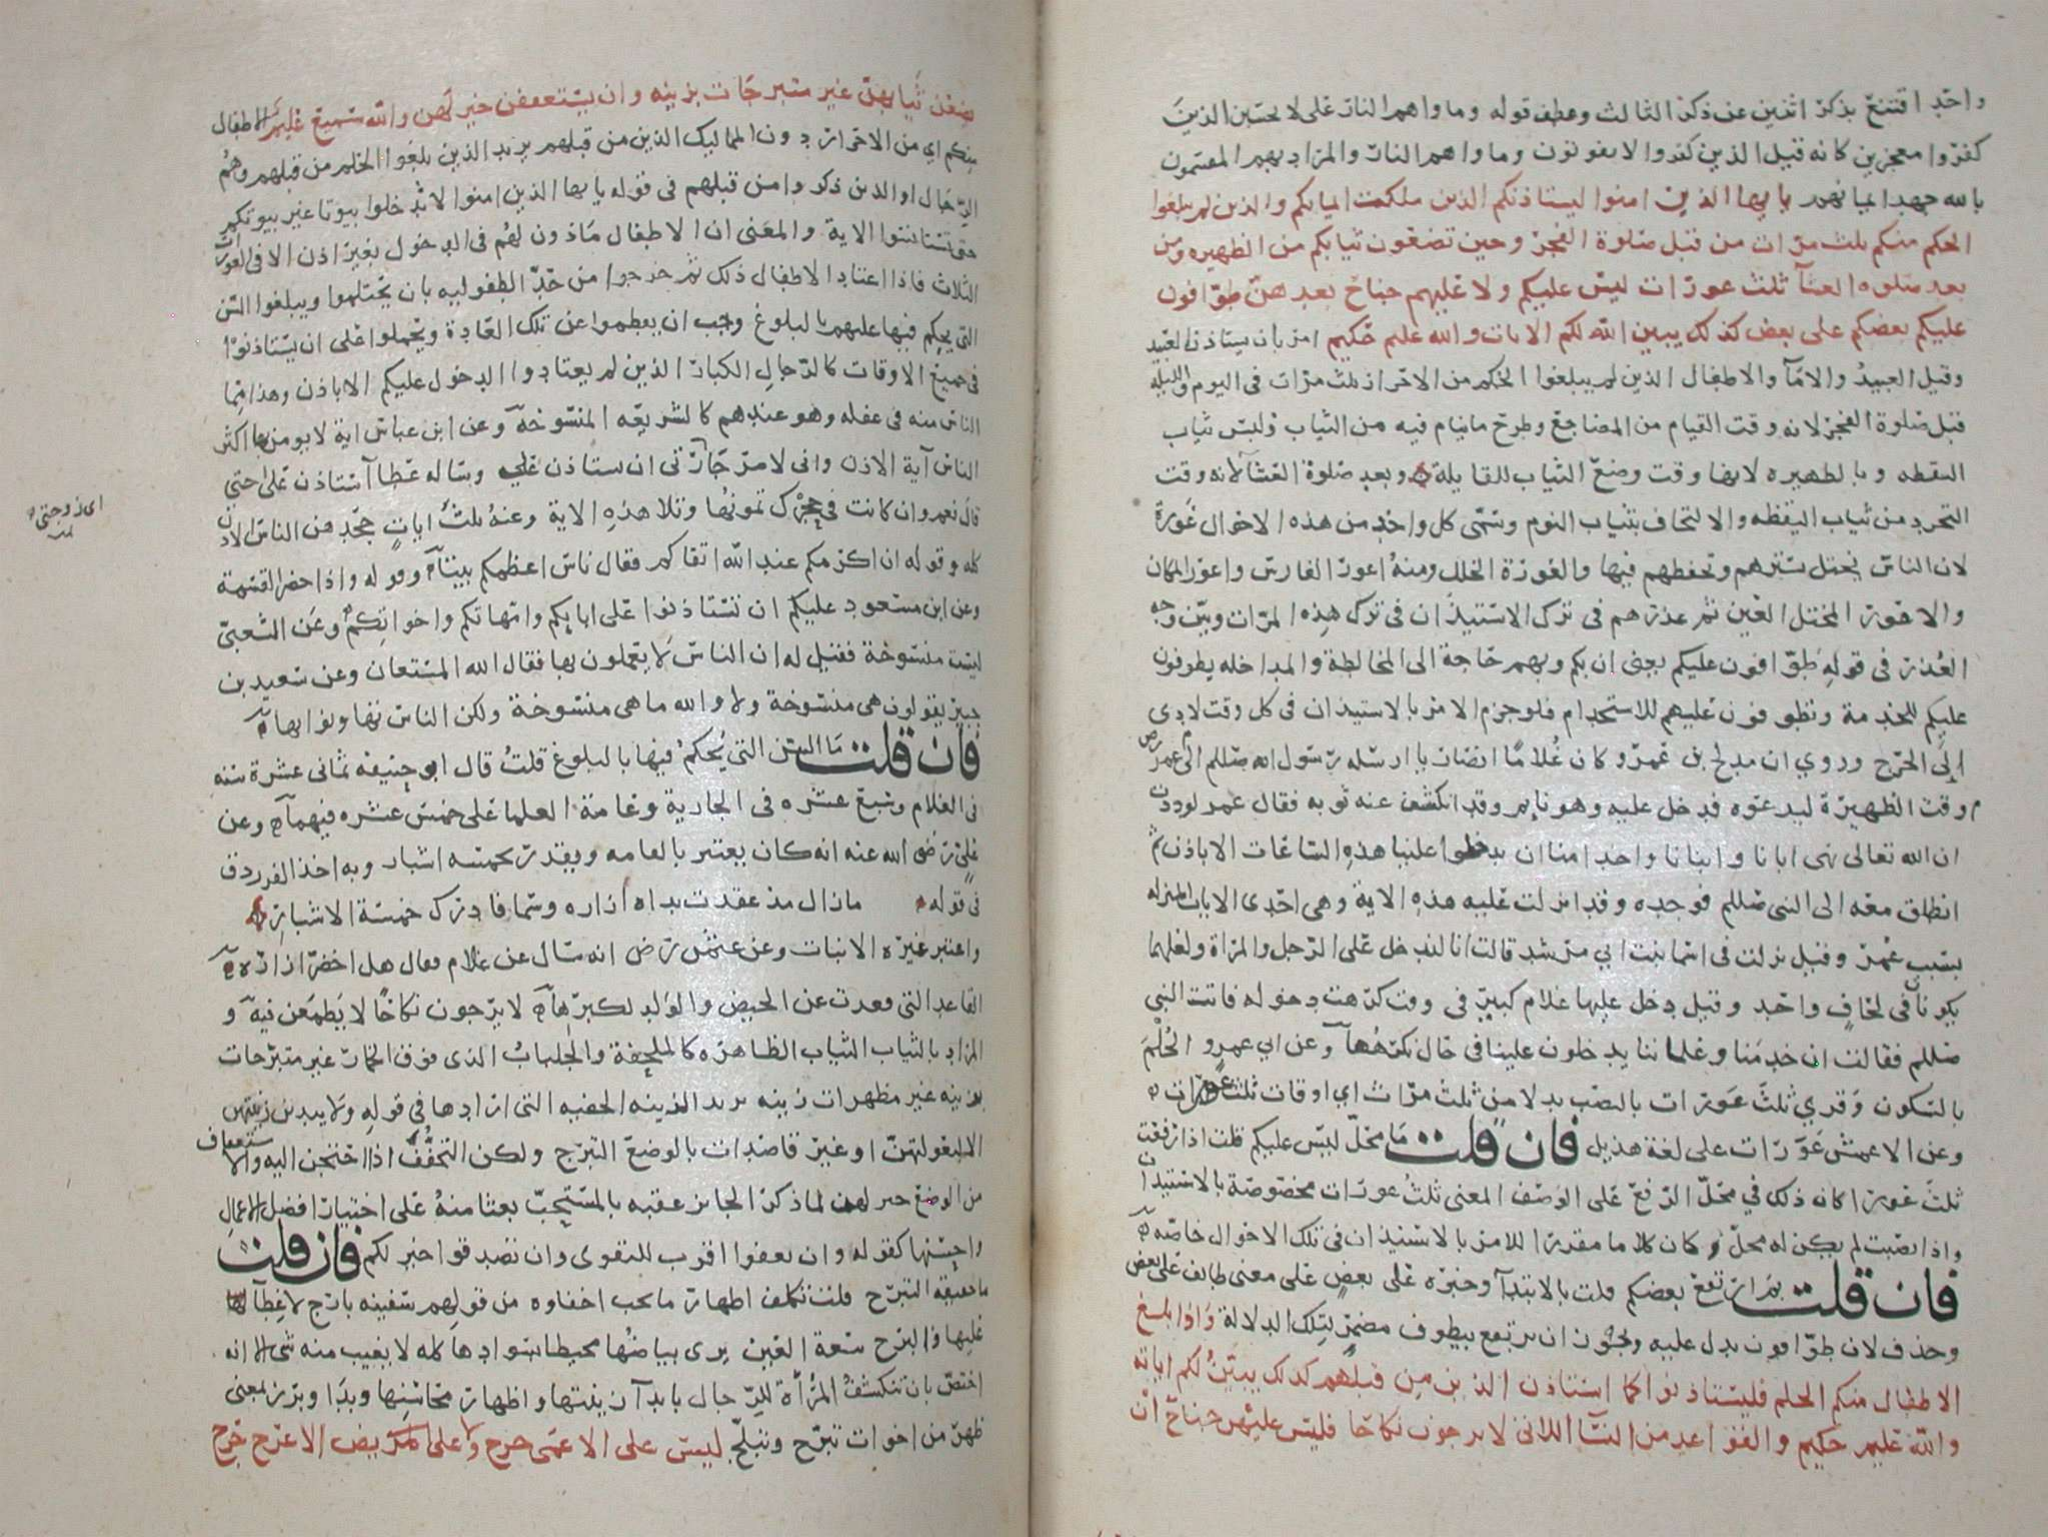 واحد اقتنع بذكر اثنين عن ذكر الثالث وعطف قوله وماواهم النار على لا يحسبن الذين
كفروا معجزين كانه قيل الذين كفروا لا يفوتون وماواهم النار والمراد بهم المقسمون
بالله جهد ايمانهم يايها الذين امنوا ليستاذنكم الذين ملكت ايمانكم والذين لم يبلغوا
الحلم منكم ثلث مرات من قبل صلوة الفجر وحين تضعون ثيابكم من الظهيره ومن
بعد صلوه العشآ ثلث عورات ليس عليكم ولا عليهم جناح بعدهن طوافون
عليكم بعضكم على بعض كذلك يبين الله لكم الايات والله عليم حكيم امر بان يستاذن العبيد
وقيل العبيد والامآ والاطفال الذين لم يبلغوا الحلم من الاحرار ثلث مرات في اليوم والليلة
قبل صلوة الفجر لانه وقت القيام من المضاجع وطرح ما ينام فيه من الثياب ولبس ثياب
اليقظه وبالظهيره لانها وقت وضع الثياب للقايلة وبعد صلوة العشآ لانه وقت
التجرد من ثياب اليقظه والالتحاف بثياب النوم وسمى كل واحد من هذه الاحوال عورة
لان الناس يختل تسترهم وتحفظهم فيها والعورة الخلل ومنه اعور الفارس واعور المكان
والاعور المختل العين ثم عذرهم في ترك الاستيذان في ترك هذه المرات وبين وجه
العذر في قوله طوافون عليكم يعنى ان بكم وبهم حاجة الى المخالطة والمداخله يطوفون
عليكم للخدمة وتطوفون عليهم للاستخدام فلو جزم الامر بالاستيذان في كل وقت لادى
الى الحرج وروي ان مدلج بن عمرو كان غلاما انصاريا ارسله رسول الله صللم الى عمر رض
وقت الظهيرة ليدعوه فدخل عليه وهو نايم وقد انكشف عنه ثوبه فقال عمر لوددت
ان الله تعالى نهى ابانا وابنانا وخدامنا ان يدخلوا علينا هذه الساعات الا باذن ثم
انطلق معه الى النبي صللم فوجده وقد انزلت عليه هذه الاية وهي احدى الايات المنزله
بسبب عمر وقيل نزلت في اسما بنت ابي مرشد قالت انا لندخل على الرجل والمراة ولعلهما
يكونان في لحاف واحد وقيل دخل عليها غلام كبير في وقت كرهت دخوله فاتت النبي
صللم فقالت ان خدمنا وغلماننا يدخلون علينا في حال نكرهها وعن ابي عمرو الحلم
بالسكون وقري ثلث عورات بالنصب بدلا من ثلث مرات اي اوقات ثلث عورات
وعن الاعمش عورات على لغة هذيل فان قلت ما محل ليس عليكم قلت اذا رفعت
ثلث عورات كان ذلك في محل الرفع على الوصف المعنى ثلث عورات مخصوصة بالاستيذان
واذا نصبت لم يكن له محل وكان كلاما مقدرا للامر بالاستيذان في تلك الاحوال خاصه
فان قلت بم ارتفع بعضكم قلت بالابتدآ وخبره على بعض على معنى طايف على بعض
وحذف لان طوافون يدل عليه ويجوز ان يرتفع بيطوف مضمرا بتلك الدلالة واذا بلغ
الاطفال منكم الحلم فليستاذنوا كما استاذن الذين من قبلهم كذلك يبين لكم اياته
والله عليم حكيم والقواعد من النسآ اللاتى لا يرجون نكاحا فليس عليهن جناح ان
يضعن ثيابهن غير متبرجات بزينه وان يستعففن خير لهن والله سميع عليم الاطفال
منكم اي من الاحرار دون المماليك الذين من قبلهم يريد الذين بلغوا الحلم من قبلهم وهم
الرجال او الذين ذكروا من قبلهم في قوله يايها الذين امنوا لا تدخلوا بيوتا غير بيوتكم
حتى تستانسوا الاية والمعنى ان الاطفال ماذون لهم في الدخول بغير اذن الا في العورات
الثلاث فاذا اعتاد الاطفال ذلك ثم خرجوا من حد الطفوليه بان يحتلموا ويبلغوا السن
التي يحكم فيها عليهم بالبلوغ وجب ان يفطموا عن تلك العادة ويحملوا على ان يستاذنوا
في جميع الاوقات كالرجال الكبار الذين لم يعتادوا الدخول عليكم الا باذن وهذا مما
الناس منه في غفله وهو عندهم كالشريعه المنسوخة وعن ابن عباس اية لا يومن بها اكثر
الناس آية الاذن وانى لامر جارتى ان ستاذن على وساله عطا آستاذن على اختي
قال نعم وان كانت في حجرك تمونها وتلا هذه الاية وعنه ثلث ايات جحدهن الناس الاذن
كله وقوله ان اكرمكم عند الله اتقاكم فقال ناس اعظمكم بيتا وقوله واذا حضر القسمة
وعن ابن مسعود عليكم ان تستاذنوا على ابايكم وامهاتكم واخواتكم وعن الشعبي
ليست منسوخة فقيل له ان الناس لا يعملون بها فقال الله المستعان وعن سعيد بن
جبير يقولون هى منسوخة ولا والله ما هى منسوخة ولكن الناس تهاونوا بها
فان قلت ما السن التى يحكم فيها بالبلوغ قلت قال ابو حنيفه ثمانى عشرة سنه
في الغلام وسبع عشره في الجارية وعامة العلما على خمس عشره فيهما وعن
على رضى الله عنه انه كان يعتبر بالقامه ويقدر بخمسه اشبار وبه اخذ الفرزدق
في قوله ما زال مذ عقدت يداه ازاره وسما فادرك خمسة الاشبار
واعتبر غيره الانبات وعن عثمن رضى انه سال عن غلام فقال هل اخضر ازاره
القاعد التي قعدت عن الحيض والولد لكبرها لا يرجون نكاحا لا يطمعن فيه و
المراد بالثياب الثياب الظاهره كالملحفة والجلباب الذى فوق الخمار غير متبرجات
بزينه غير مظهرات زينه يريد الزينه الخفيه التى ارادها في قوله ولا يبدين زينتهن
الا لبعولتهن او غير قاصدات بالوضع التبرج ولكن التخفف اذا احتجن اليه والاستعفاف
من الوضع خير لهن لما ذكر الجايز عقبه بالمستحب بعثا منه على اختيار افضل الاعمال
واحسنها كقوله وان تعفوا اقرب للتقوى وان تصدقوا خير لكم فان قلت
ما حقيقة التبرج قلت تكلف اظهار ما يجب اخفاوه من قولهم سفينه بارج لا غطآ لها
عليها والبرج سعة العين يرى بياضها محيطا بسوادها كله لا يغيب منه شى الا انه
اختص بان تتكشف المراة للرجال بابدآ زينتها واظهار محاسنها وبدا وبرز بمعنى
ظهر من اخوات تبرج وتبلج ليس على الاعمى حرج ولا على الاعرج حرج
اى زوجتى